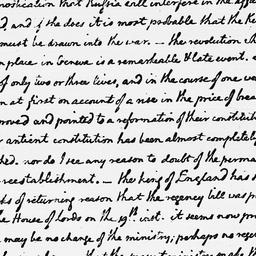 nosication that Russia will interfere in the affai
d, and if she does it is most probable that the Ki
must be drawn into the war. — the revolution th
n place in Geneva is a remarkeable & late event. a
of only two or three lives, and in the course of one we
n at first on account of a rise in the price of brea
proved and pointed to a reformation of their constituti
r antient constitution has been almost completely
hed. nor do I see any reason to doubt of the perma
reestablishment. — the king of England has s
ks of returning reason that the regency bill was p
the House of Lords on the 19th inst. it seems now pr
may be no change of the ministry; perhaps no rege